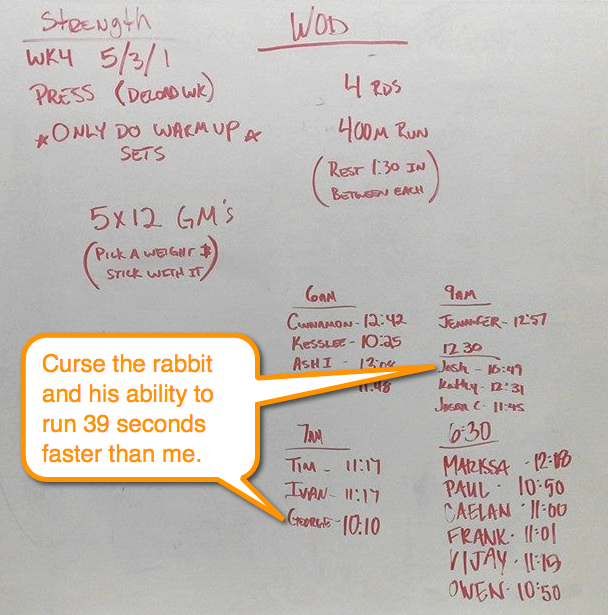 Strength
WK4 5/3/1
PRESS (DELOAD WK)
*ONLY DO WARMUP *
SETS
5x12 GM's
(PICK A WEIGHT &
STICK WITH IT)
WOD
4 RDS
400M RUN
(REST 1:30 IN
BETWEEN EACH)
6AM
CINNAMON - 12:42
KESSLEE - 10:25
ASHI -
11:48
9AM
JENNIFER - 12:57
12:30
Josh - 10:49
Kathy - 12:31
Jason C - 11:45
Curse the rabbit
and his ability to
run 39 seconds
faster than me.
7AM
TIM - 11:17
IVAN - 11:17
GEORGE - 10:10
6:30
MARISSA - 12:18
PAUL - 10:50
CAELAN - 11:00
FRANK - 11:01
VIJAY - 11:19
OWEN - 10:50